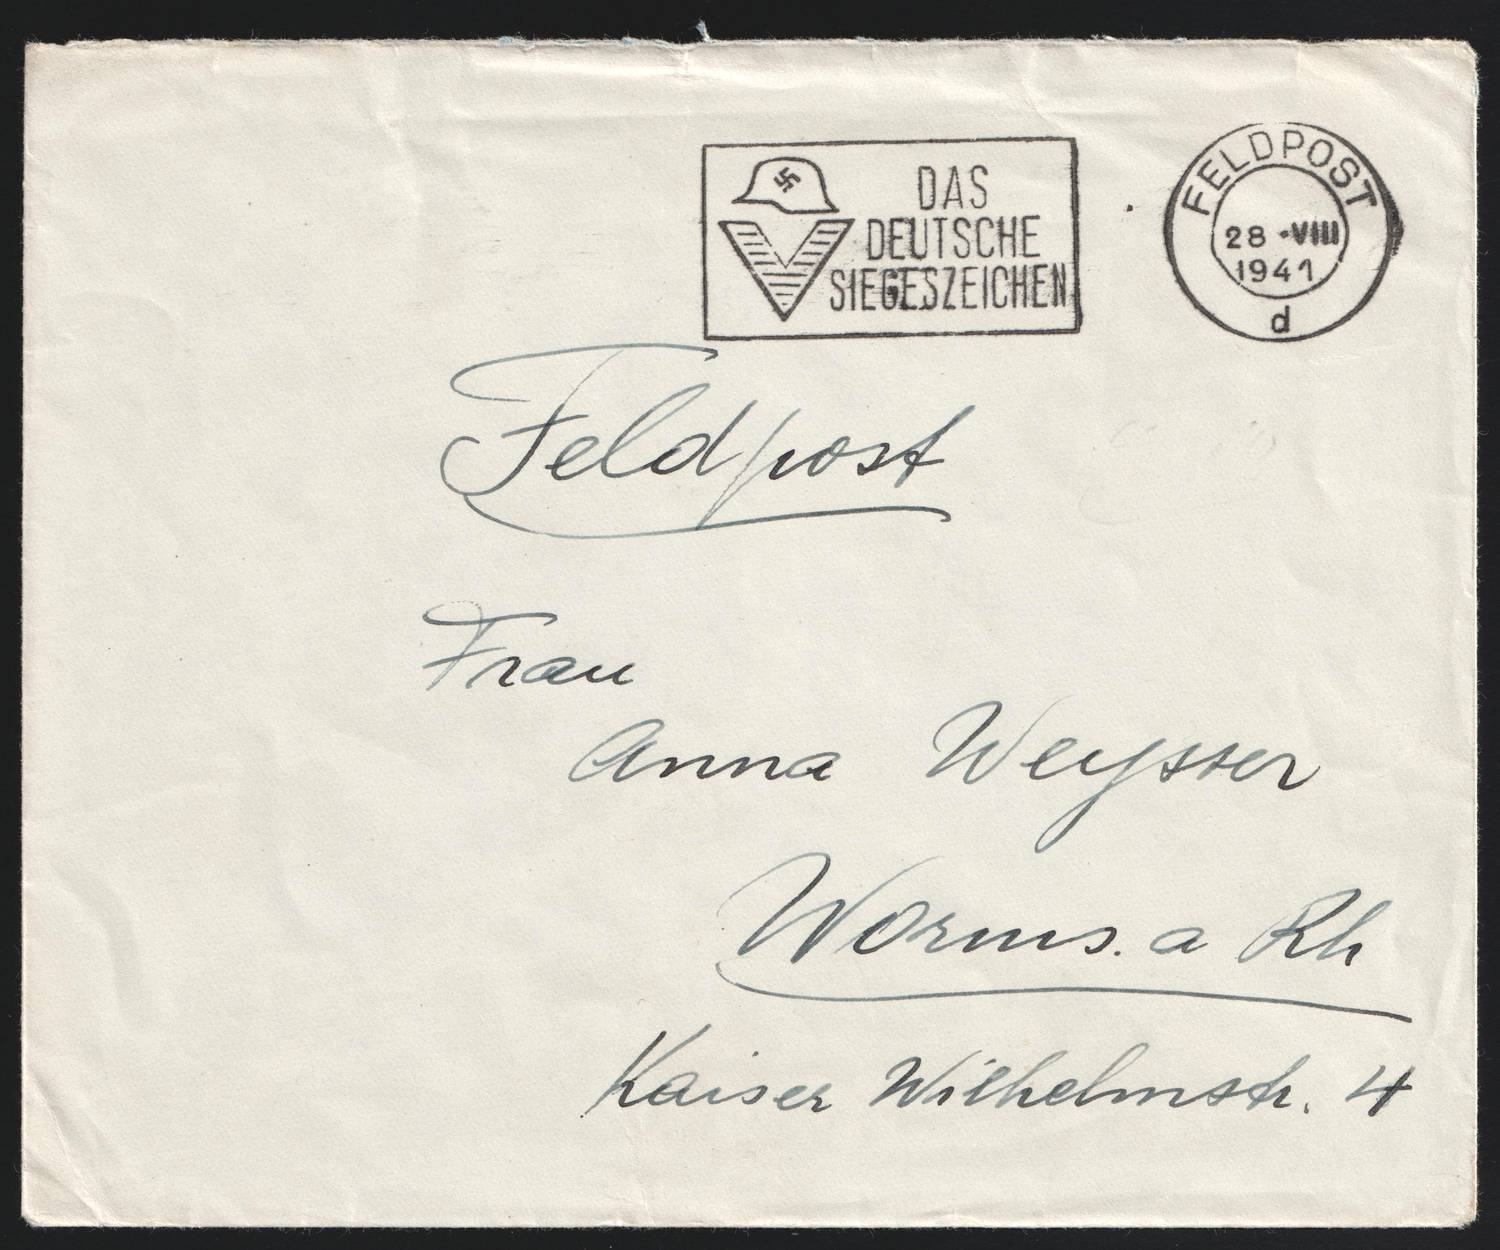 DAS
DEUTSCHE
SIEGESZEICHEN
FELDPOST
28.VIII
1941
d
Feldpost
Frau
Anna Weysser
Worms. a Rh
Kaiser Wilhelmstr. 4